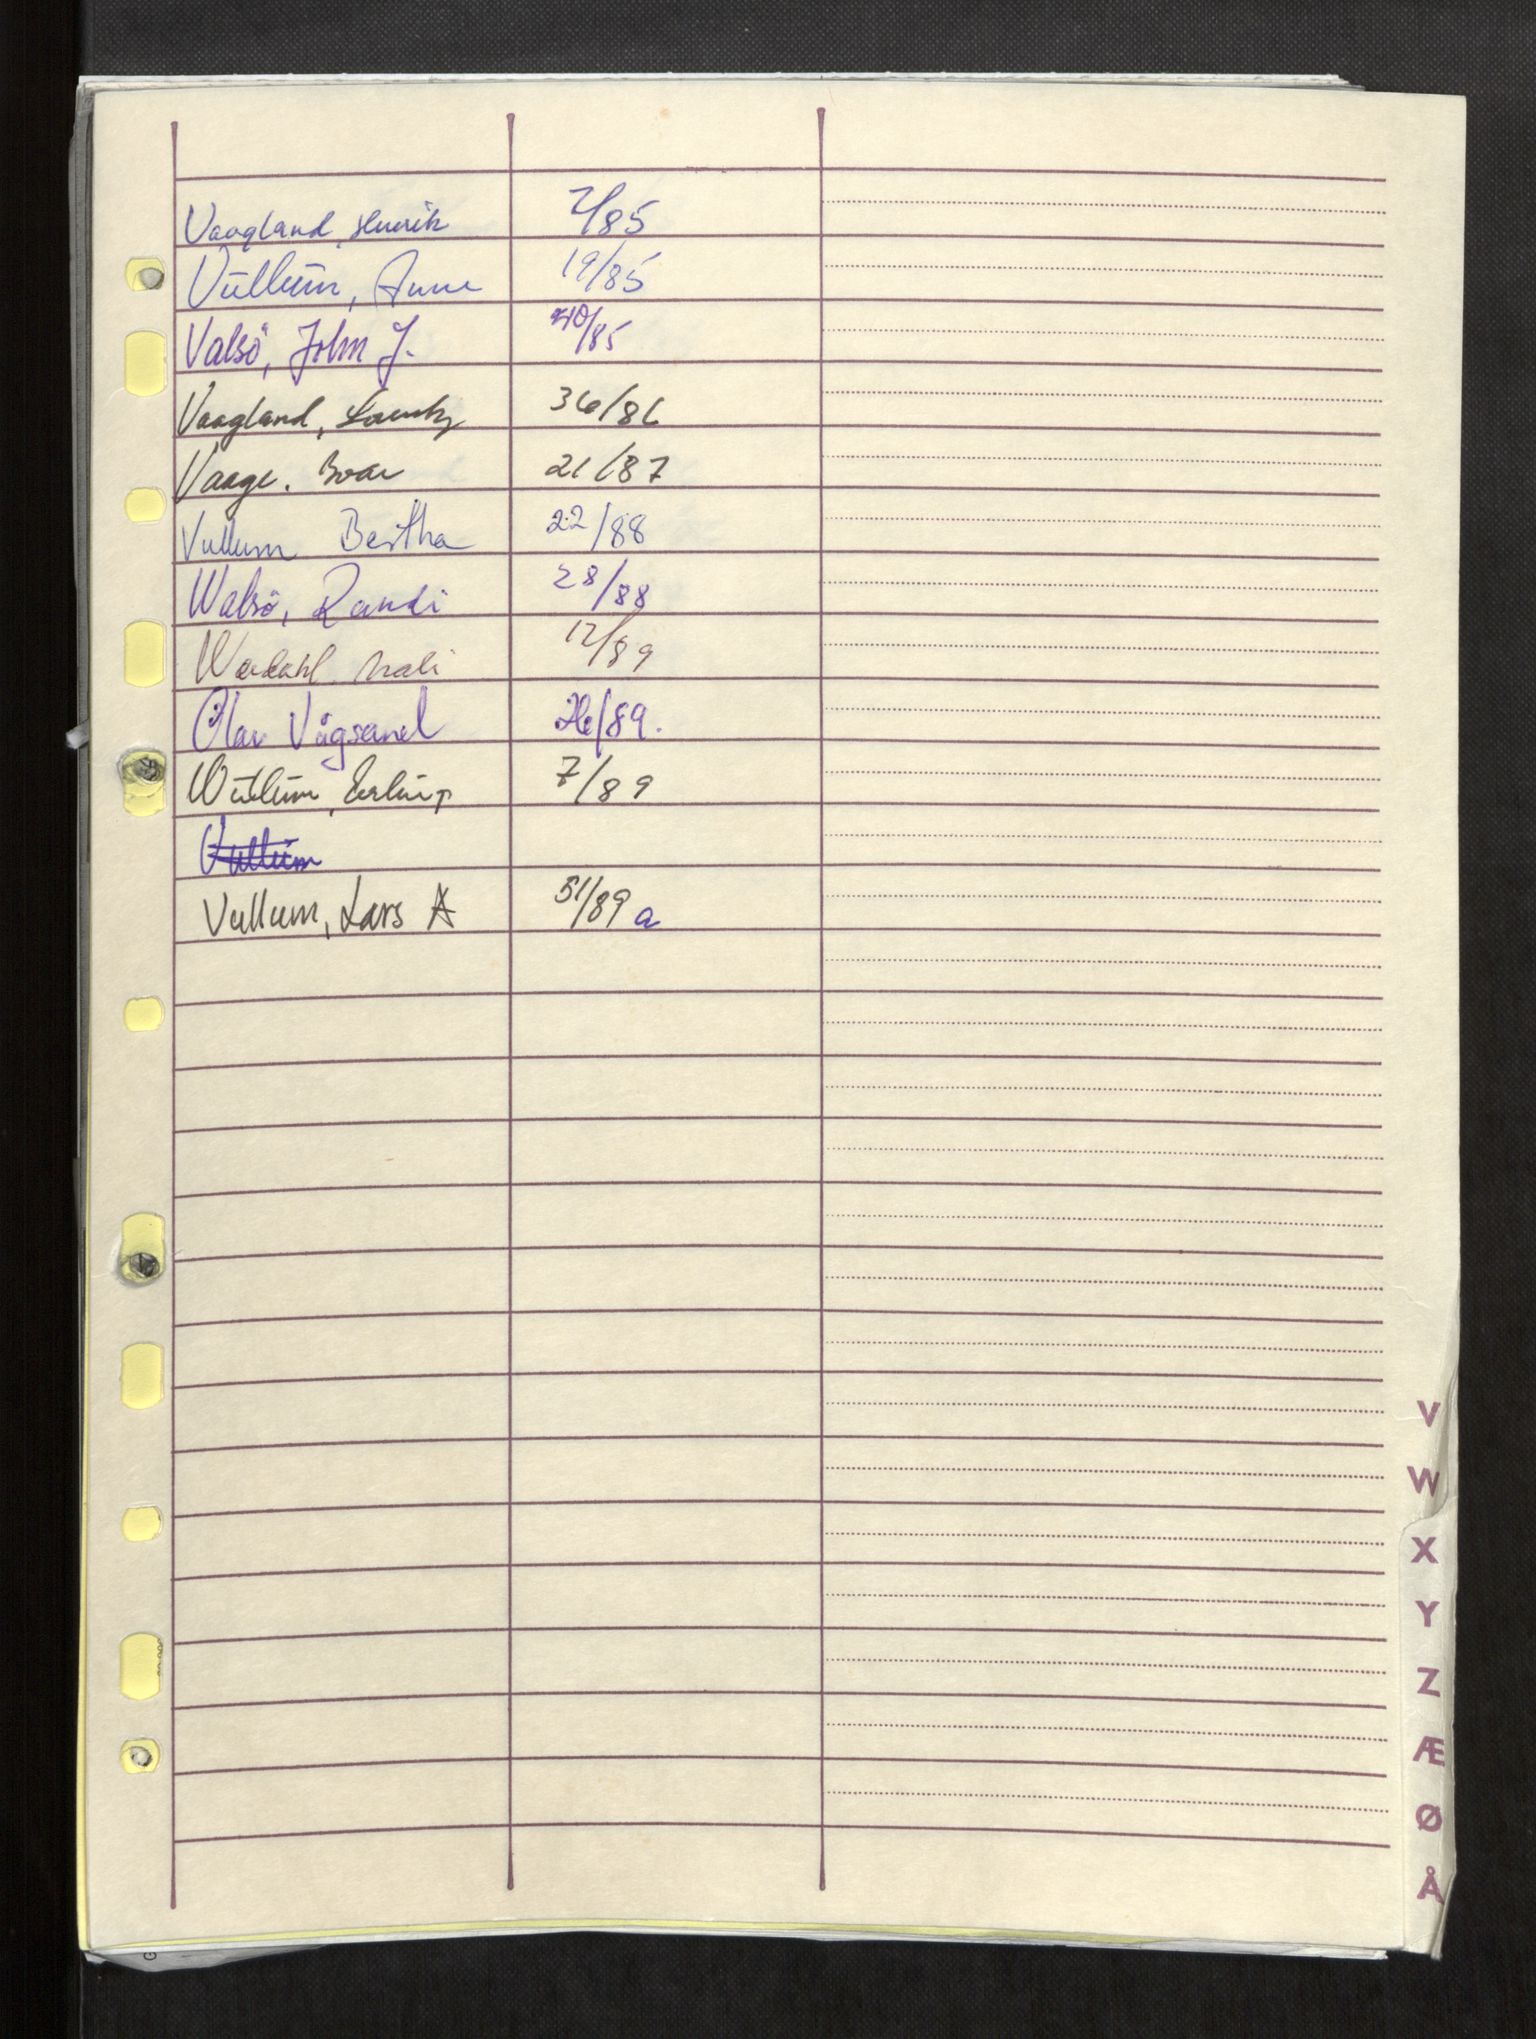 Vaagland, Henrik 2/85
Vullum, Anne 19/85
Valsö, John J. 40/85
Vaagland, 36/86
Vaage. Ivar 21/87
Vullum Bertha 22/88
Walsö, Randi 28/88
Werdahl, Mali 12/89
Olav Vågsend 26/89.
Wullum, Erling 7/89
Vullum
Vullum, Lars A 51/89 a
V
W
X
Y
Z
Æ
Ø
Å